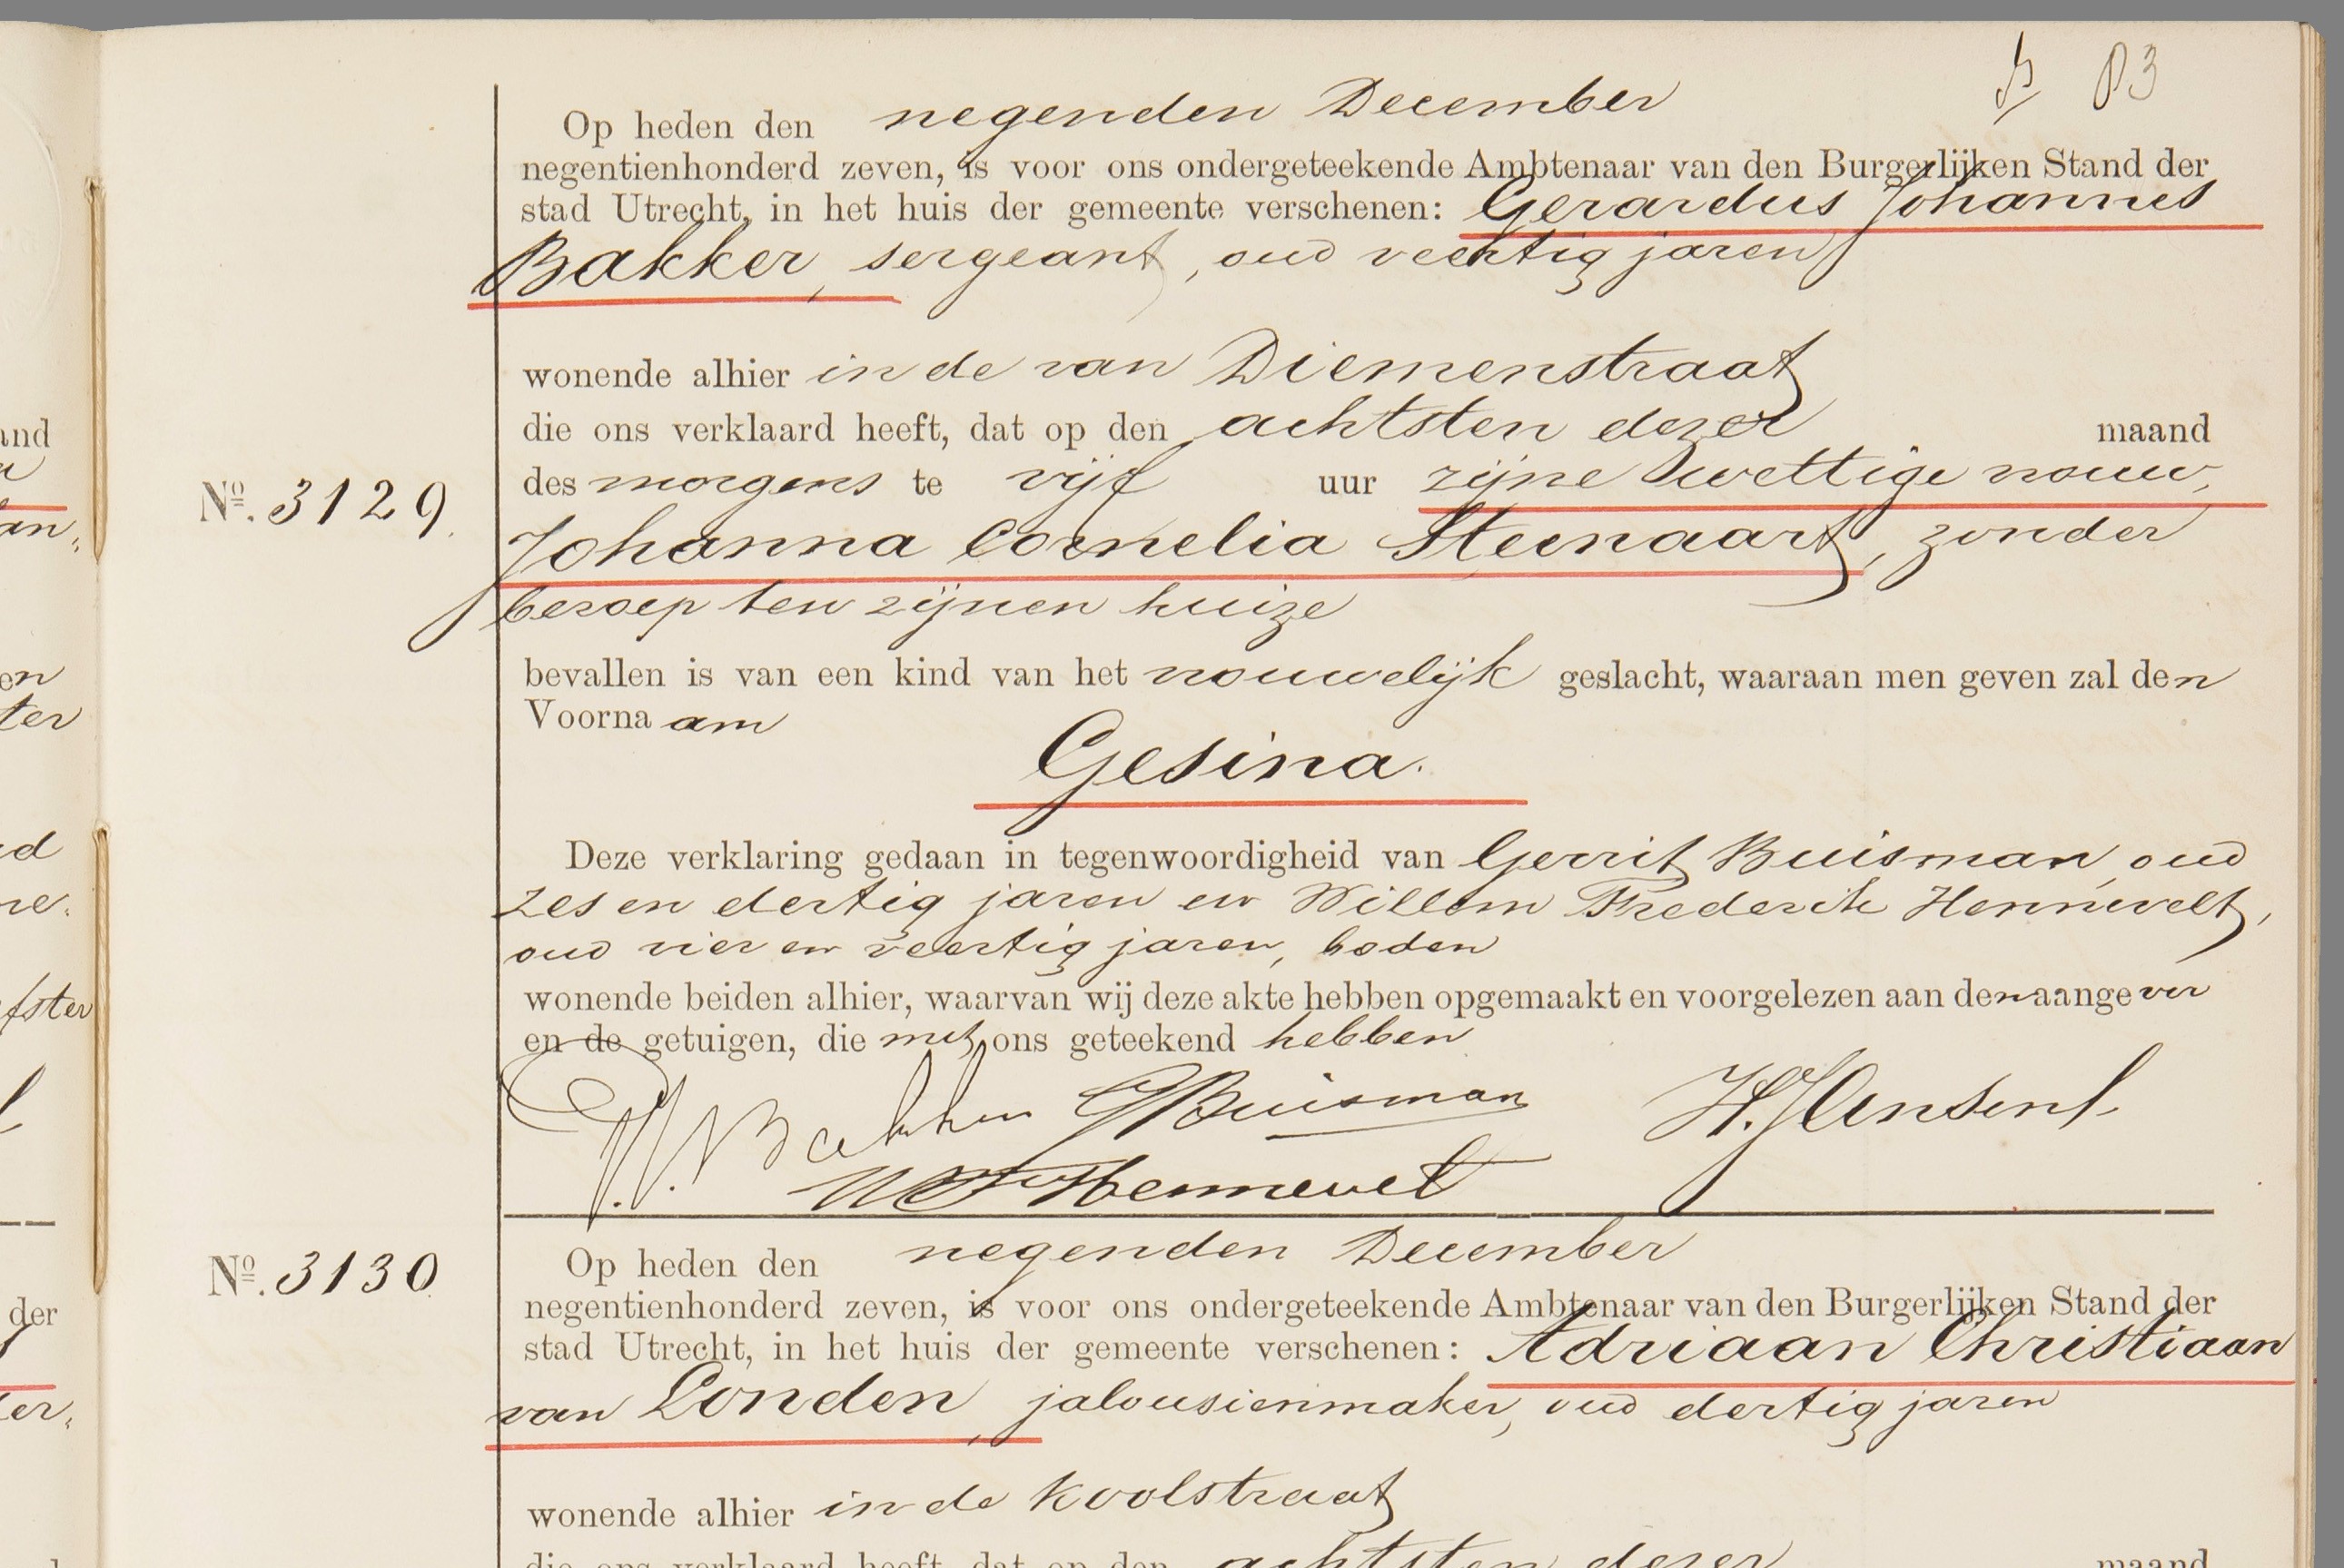 83
Op heden den negenden December
negentienhonderd zeven, is voor ons ondergeteekende Ambtenaar van den Burgerlijken Stand der
stad Utrecht, in het huis der gemeente verschenen: Gerardus Johannes
Bakker, sergeant, oud veertig jaren
wonende alhier in de van Diemenstraat
die ons verklaard heeft, dat op den achtsten dezer maand
No. 3129.
des morgens te vijf uur zijne wettige vrouw,
Johanna Cornelia Steenaart, zonder
beroep ten zijnen huize
bevallen is van een kind van het vrouwelijk geslacht, waaraan men geven zal den
Voornaam
Gesina.
Deze verklaring gedaan in tegenwoordigheid van Gerrit Buisman, oud
zes en dertig jaren en Willem Frederik Hennevelt,
oud vier en veertig jaren, boden
wonende beiden alhier, waarvan wij deze akte hebben opgemaakt en voorgelezen aan den aangever
en de getuigen, die met ons geteekend hebben
Bakker GBuisman
WF Hennevelt
No. 3130
Op heden den negenden December
negentienhonderd zeven, is voor ons ondergeteekende Ambtenaar van den Burgerlijken Stand der
stad Utrecht, in het huis der gemeente verschenen: Adriaan Christiaan
van Londen, jalousienmaker, oud dertig jaren
wonende alhier in de Koolstraat
die ons verklaard heeft, dat op den achtsten dezer maand